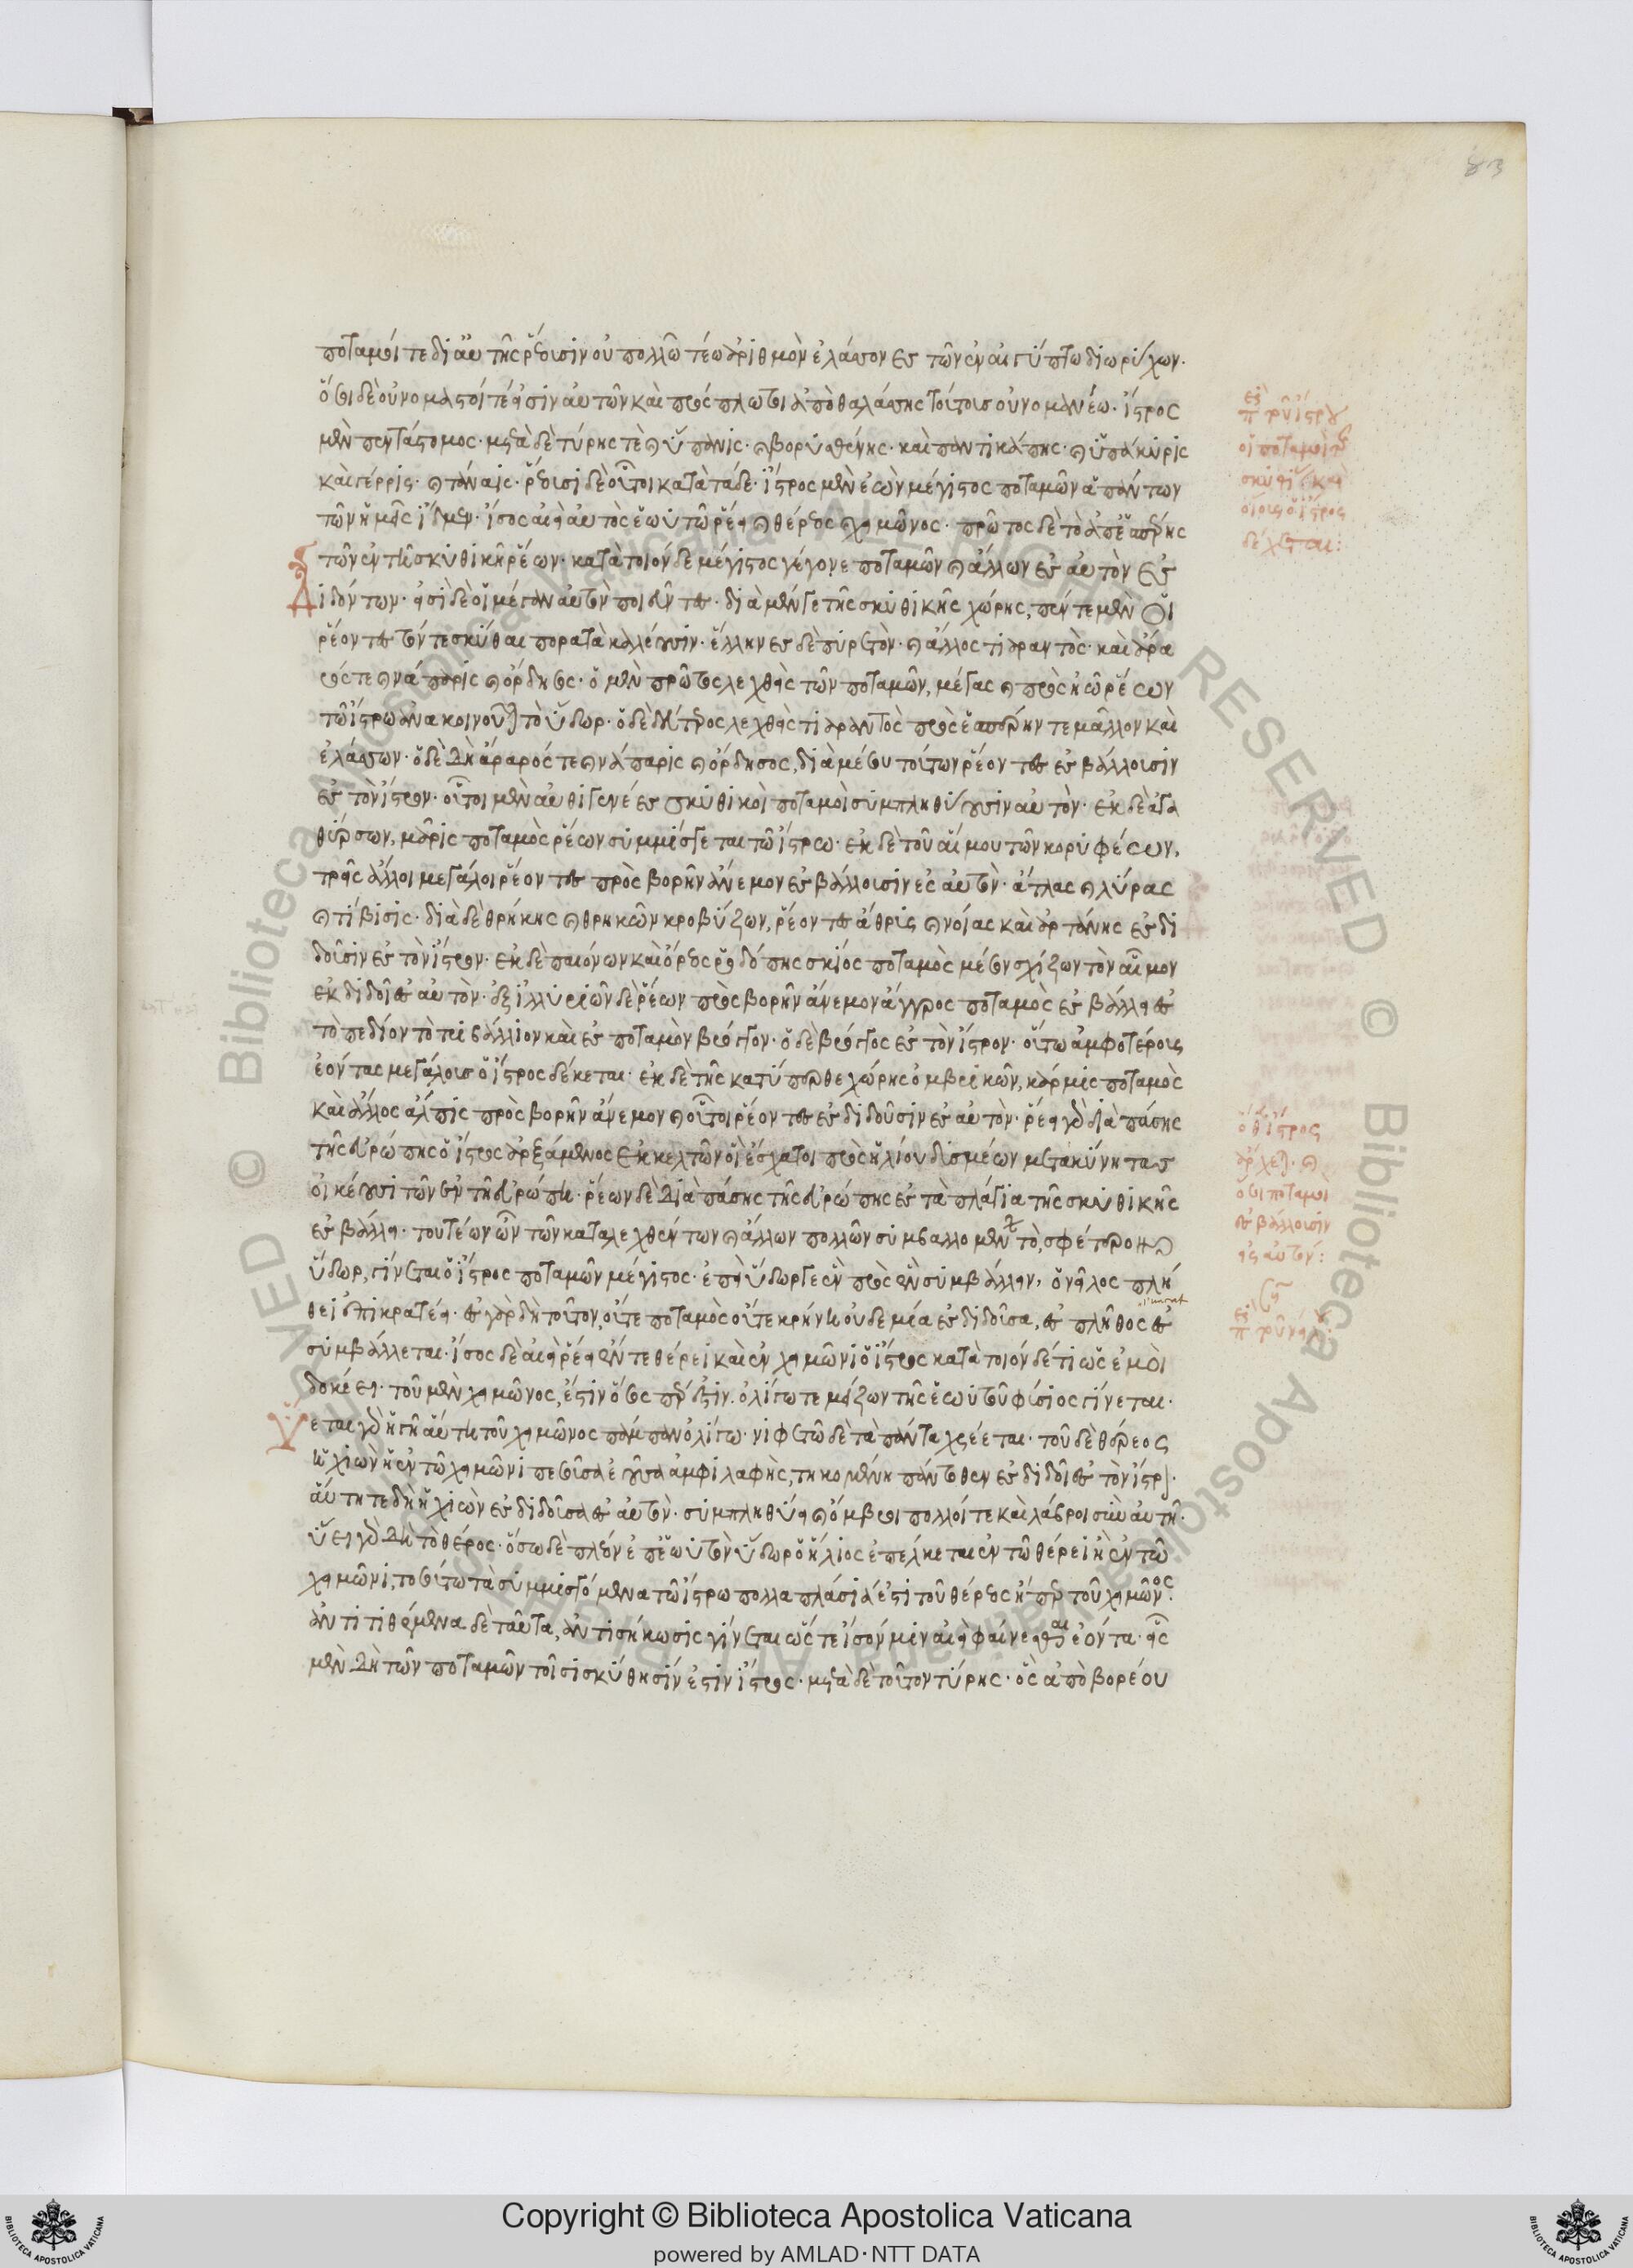 83
ποταμοί τε δι αὐτῆς ῥέουσιν οὐ πολλῶ τέω ἀριθμὸν ἐλάσσονες τῶν ἐν αἰγύπτω διωρύχων·
ὅσοι δὲ οὐνομαστοί τέ εἰσιν αὐτῶν καὶ προσπλωτοὶ ἀπὸ θαλάσσης τούτοισ οὐνομανέω· ἴστρος
μὲν πεντάστομος· μετὰ δὲ τύρης τὲ καὶ ὕπανις· καὶ βορυσθένης· καὶ παντικάπης· καὶ ὑπάκυρις
καὶ γέρρις· καὶ τάναϊς· ῥέουσι δὲ οὗτοι κατὰ τάδε· ἴστρος μὲν ἐὼν μέγιστος ποταμῶν ἁπάντων
τῶν ἡμεῖς ἴδμεν· ἴσος αἰεὶ αὐτὸς ἑωυτῶ ῥέει καὶ θέρεος καὶ χειμῶνος· πρῶτος δὲ τὸ ἀπ ἑσπέρης
τῶν ἐν τῆ σκυθικῆ ῥέων· κατὰ τοιόνδε μέγιστος γέγονε ποταμῶν καὶ ἄλλων ἐς αὐτὸν ἐσ
διδόντων· εἰσὶ δὲ οἵ μέγαν αὐτὸν ποιεῦντες· διὰ μέν γε τῆς σκυθικῆς χώρης, πέντε μὲν οἱ
ῥέοντες τόν τε σκύθαι πόρατα καλέουσιν· ἕλληνες δὲ πυρετόν· καὶ ἄλλος τιάραντος· καὶ ἄρα
ρός τε καὶ νάπαρις καὶ ὀρδησός· ὁ μὲν πρῶτος λεχθεὶς τῶν ποταμῶν, μέγας καὶ πρὸς ἠῶ ῥέων
τῶ ἴστρω ἀνακοινοῦται τὸ ὕδωρ· ὁ δὲ δεύτερος λεχθεὶς τιάραντος πρὸς ἑσπέρην τε μᾶλλον καὶ
ἐλάσσων· ὁ δὲ δὴ ἄραρός τε καὶ νάπαρις καὶ ὀρδησος, διὰ μέσου τούτων ῥέοντες ἐσβάλλουσιν
ἐς τὸν ἴστρον· οὗτοι μὲν αὐθιγενέες σκυθικοὶ ποταμοὶ συμπληθύουσιν αὐτόν· ἐκ δὲ ἀγα
θύρσων, μάρις ποταμὸς ῥέων συμμίσγεται τῶ ἴστρω· ἐκ δὲ τοῦ αἵμου τῶν κορυφέων,
τρεῖς ἄλλοι μεγάλοι ῥέοντες πρὸς βορῆν ἄνεμον ἐσβάλλουσιν ἐς αὐτόν· ἄτλας καὶ αὔρας
καὶ τίβισις· διὰ δὲ θρήκης καὶ θρηκῶν κροβύζων, ῥέοντες ἄθρις καὶ νόας καὶ ἀρτάνης ἐκδι
δοῦσιν ἐς τὸν ἴστρον· ἐκ δὲ παιόνων καὶ ὄρεος ῥοδόπης σκίος ποταμὸς μέσον σχίζων τὸν αἷμον
ἐκδιδοῖ ἐς αὐτόν· ἐξ ἰλλυριῶν δὲ ῥέων πρὸς βορῆν ἄνεμον ἄγγρος ποταμὸς ἐσβάλλει ἐς
τὸ πεδίον τὸ τριβάλλιον καὶ ἐς ποταμὸν βρόγγον· ὁ δὲ βρόγγος ἐς τὸν ἴστρον· οὕτω ἀμφοτέρους
ἐόντας μεγάλουσ ὁ ἴστρος δέκεται· ἐκ δὲ τῆς κατύπερθε χώρης ὀμβρικῶν, κάρπις ποταμὸς
καὶ ἄλλος ἄλπις πρὸς βορῆν ἄνεμον καὶ οὗτοι ῥέοντες ἐκδιδοῦσιν ἐς αὐτόν· ῥέει γὰρ διὰ πάσης
τῆς εὐρώπης ὁ ἴστρος ἀρξάμενος ἐκ κελτῶν οἳ ἔσχατοι πρὸς ἡλίου δυσμέων μετὰ κύνητας
οἰκέουσι τῶν ἐν τῆ εὐρώπη· ῥέων δὲ διὰ πάσης τῆς εὐρώπης ἐς τὰ πλάγια τῆς σκυθικῆς
ἐσβάλλει· τουτέων ὦν τῶν καταλεχθέντων καὶ ἄλλων πολλῶν συμβαλλομένων τὸ σφέτερον
ὕδωρ, γίνεται ὁ ἴστρος ποταμῶν μέγιστος· ἐπεὶ ὕδωρ γε ἓν πρὸς ἓν συμβάλλειν, ὁ νεῖλος πλή
θεϊ ἐπικρατέει· ἐς γὰρ δὴ τοῦτον, οὔτε ποταμὸς οὔτε κρήνη οὐδεμία ἐσδιδοῦσα, ἐς πλῆθος ἐς
συμβάλλεται· ἴσος δὲ αἰεὶ ῥέει ἔν τε θέρεϊ καὶ ἐν χειμῶνι ὁ ἴστρος κατὰ τοιόνδε τι ὡς ἐμοὶ
δοκέει· τοῦ μὲν χειμῶνος, ἐστὶν ὅσος περ ἐστίν. ὀλίγω τε μέζων τῆς ἑωυτοῦ φύσιος γίνεται·
ὕεται γὰρ ἡ γῆ αὕτη τοῦ χειμῶνος πάμπαν ὀλίγω· νιφετῶ δὲ τὰ πάντα χρέεται· τοῦ δὲ θέρεος
ἡ χιὼν ἡ ἐν τῶ χειμῶνι πεσοῦσα ἐοῦσα ἀμφιλαφὴς, τηκομένη πάντοθεν ἐσδιδοῖ ἐς τὸν ἴστρον·
αὕτη τε δὴ ἡ χιὼν ἐσδιδοῦσα ἐς αὐτὸν· συμπληθύει καὶ ὄμβροι πολλοί τε καὶ λάβροι σὺν αὐτῆ·
ὕει γὰρ δὴ τὸ θέρος· ὅσω δὲ πλέον ἐπ ἑωυτὸν ὕδωρ ὁ ἥλιος ἐπέλκεται ἐν τῶ θέρεϊ ἢ ἐν τῶ
χειμῶνι, τοσούτω τὰ συμμισγόμενα τῶ ἴστρω πολλαπλάσιά ἐστι τοῦ θέρεος ἤπερ τοῦ χειμῶνος·
ἀντιτιθέμενα δὲ ταῦτα, ἀντισήκωσις γίνεται ὥστε ἴσόν μιν αἰεὶ φαίνεσθαι ἐόντα· εἷς
μὲν δὴ τῶν ποταμῶν τοῖσι σκύθησίν ἐστιν ἴστρος· μετὰ δὲ τοῦτον τύρης· ὃς ἀπὸ βορέου
περὶ τοῦ ἴστρου
οἱ ποταμοὶ
οὓς ὁ ἴστρος
δέχεται:
ὅθ ἴστρος
ἄρχεται· καὶ
ὅσοι ποταμοὶ
ἐσβάλλουσιν
εἰς αὐτόν:
περὶ τοῦ νείλου:
Copyright © Biblioteca Apostolica Vaticana
powered by AMLAD·NTT DATA